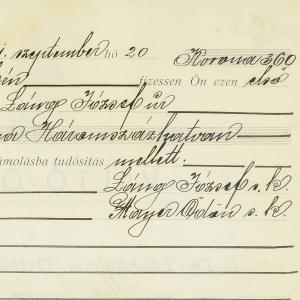 szeptember hó 20 Korona 360
én fizessen Ön ezen első
Láng József úr
Háromszázhatvan
ámolásba tudósítás mellett.
Láng József s. k.
Mayer Ödön s. k.